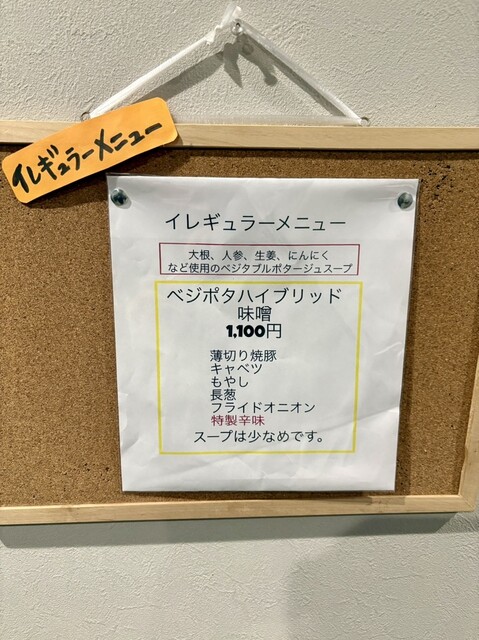 イレギュラーメニュー
イレギュラーメニュー
大根、人参、生姜、にんにく
など使用のベジタブルポタージュスープ
ベジポタハイブリッド
味噌
1,100円
薄切り焼豚
キャベツ
もやし
長葱
フライドオニオン
特製辛味
スープは少なめです。